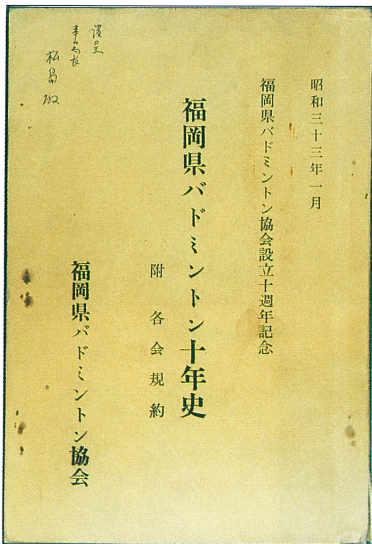 昭和三十三年一月
福岡県バドミントン協会設立十週年記念
福岡県バドミントン十年史
附各会規約
福岡県バドミントン協会